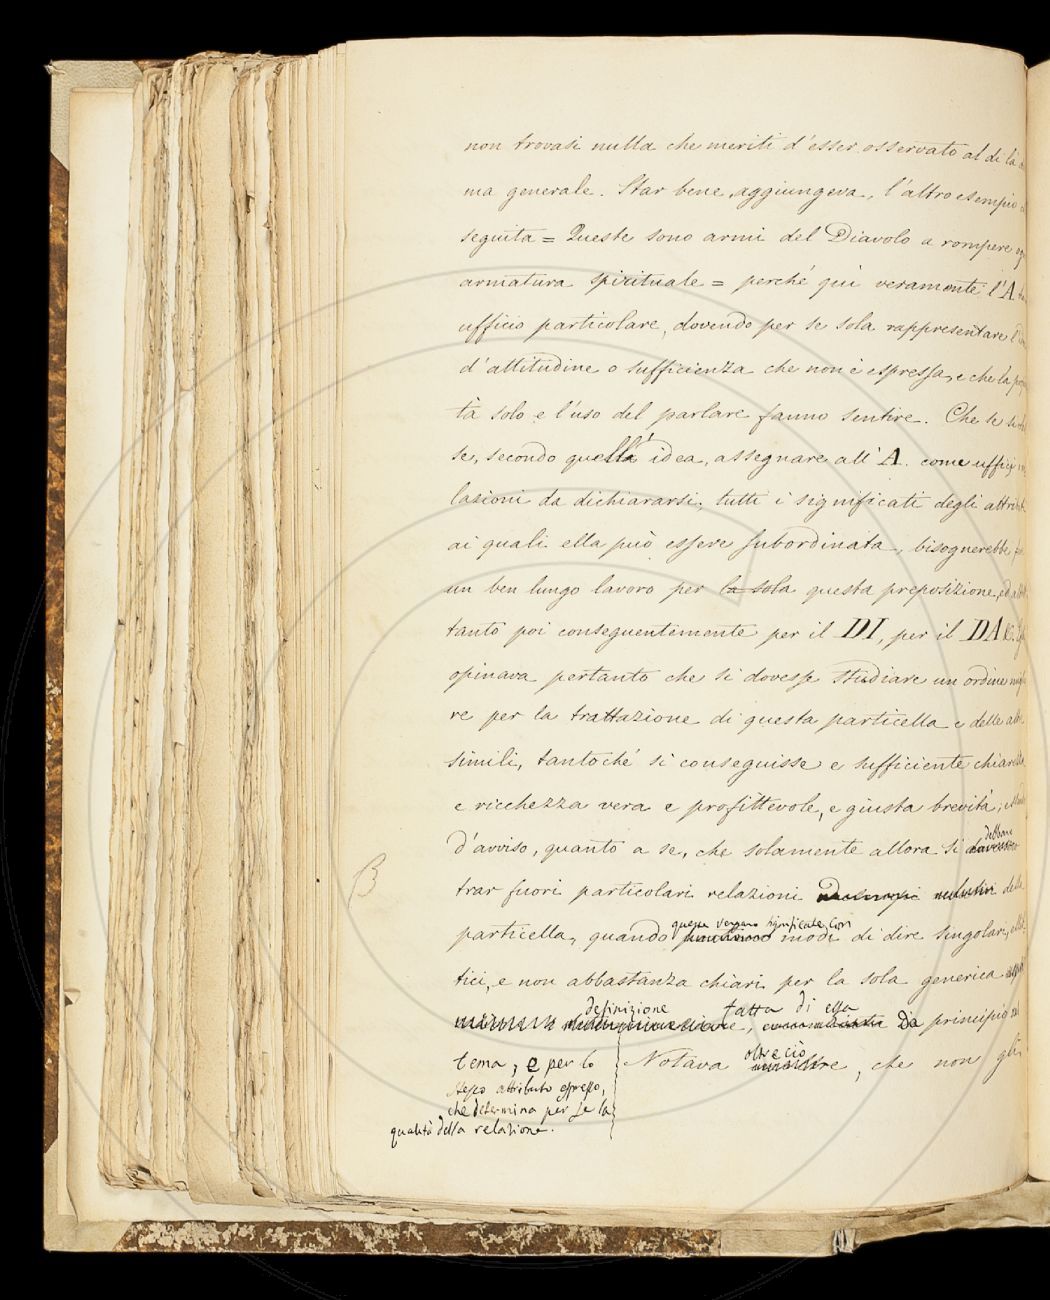 non trovasi nulla che meriti d'esser osservato al di là
ma generale. Star bene, aggiungeva, l'altro esempio
seguìta = Queste sono armi del Diavolo a rompere
armatura spirituale = perché quì veramente l'A
ufficio particolare, dovendo per se sola rappresentare
d'attitudine o sufficienza che non è espressa, e che la
tà solo e l'uso del parlare fanno sentire. Che se
se, secondo quella idea, assegnare all'A. come ufficj
lazioni da dichiararsi, tutti i significati degli
ai quali ella può essere subordinata, bisognerebbe
un ben lungo lavoro per la sola questa preposizione, ed
tanto poi conseguentemente per il DI, per il DA
opinava pertanto che si dovesse studiare un ordine
re per la trattazione di questa particella e delle
simili, tantoché si conseguisse e sufficiente
e ricchezza vera e profittevole, e giusta brevità;
debbano
d'avviso, quanto a se, che solamente allora si
trar fuori particolari relazioni
queste vengano significate con
particella, quando modi di dire singolari,
tici, e non abbastanza chiari per la sola generica
definizione fatta di essa
Da principio
B
tema; e per lo
stesso attributo espresso,
che determina per se la
qualità della relazione.
oltre ciò
Notava, che non